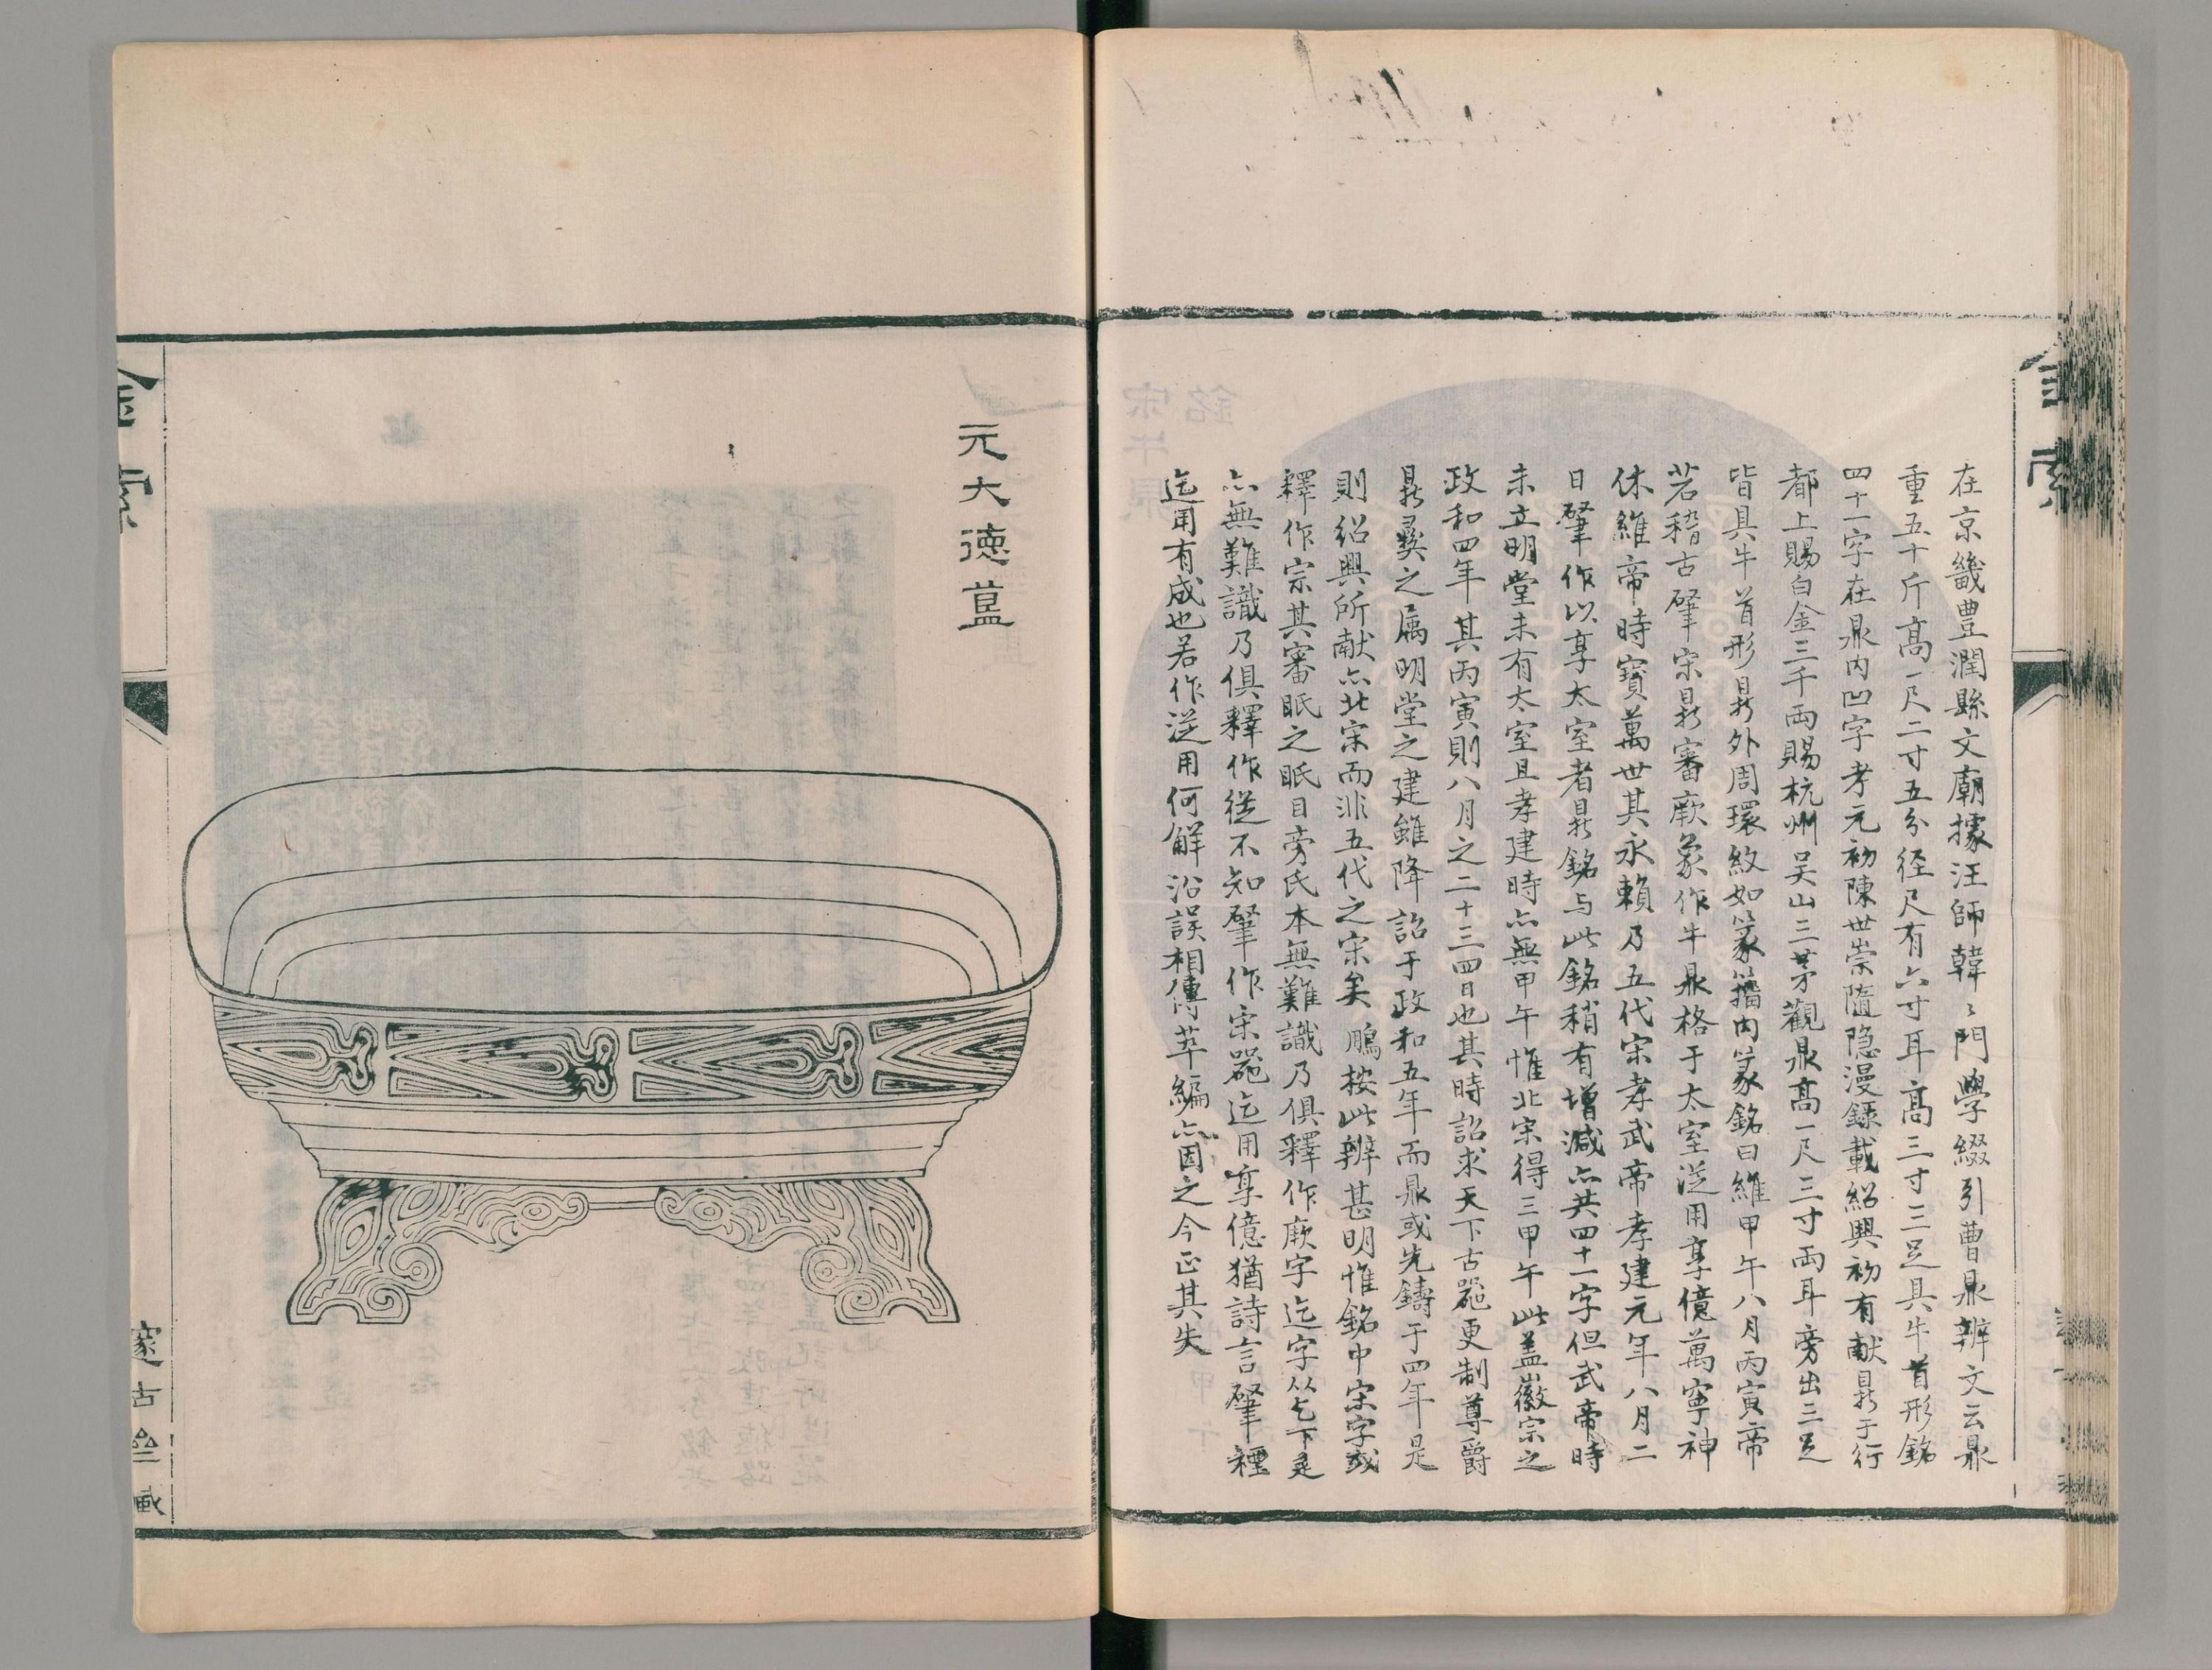 在京畿豊潤縣文廟據汪師韓〻門學綴引曹鼎辨文云鼎
重五十斤髙一尺二寸五分径尺有六寸耳髙三寸三足具牛首形銘
四十一字在鼎内凹字孝元初陳世崇隨隐漫録載紹興初有献鼑于行
都上賜白金三千兩賜杭州吴山三茅觀鼎髙一尺三寸兩耳旁出三足
皆具牛首形鼑外周環紋如篆籀内篆銘曰維甲午八月丙寅帝
若稽古肇宋鼑審厥象作牛鼎格于太室迣用享億萬寧神
休維帝時寶萬世其永賴乃五代宋孝武帝孝建元年八月二
日肇作以享太室者鼑銘与此銘稍有增減亦共四十一字但武帝時
未立明堂未有太室且孝建時亦無甲午惟北宋得三甲午此盖徽宗之
政和四年其丙寅則八月之二十三四日也其時詔求天下古器更制尊爵
鼑彝之属明堂之建雖降詔于政和五年而鼎或先鑄于四年是
則紹興所献亦北宋而非五代之宋矣鵬按此辨甚明惟銘中宋字或
釋作宗其審眂之眂目旁氏本無難識乃俱釋作厥字迄字从乞下辵
亦無難識乃俱釋作従不知肇作宋器迄用享億猶詩言肇禋
迄用有成也若作迣用何解沿誤相傳萃編亦因之今正其失
元大德簠
金索
邃古齋藏